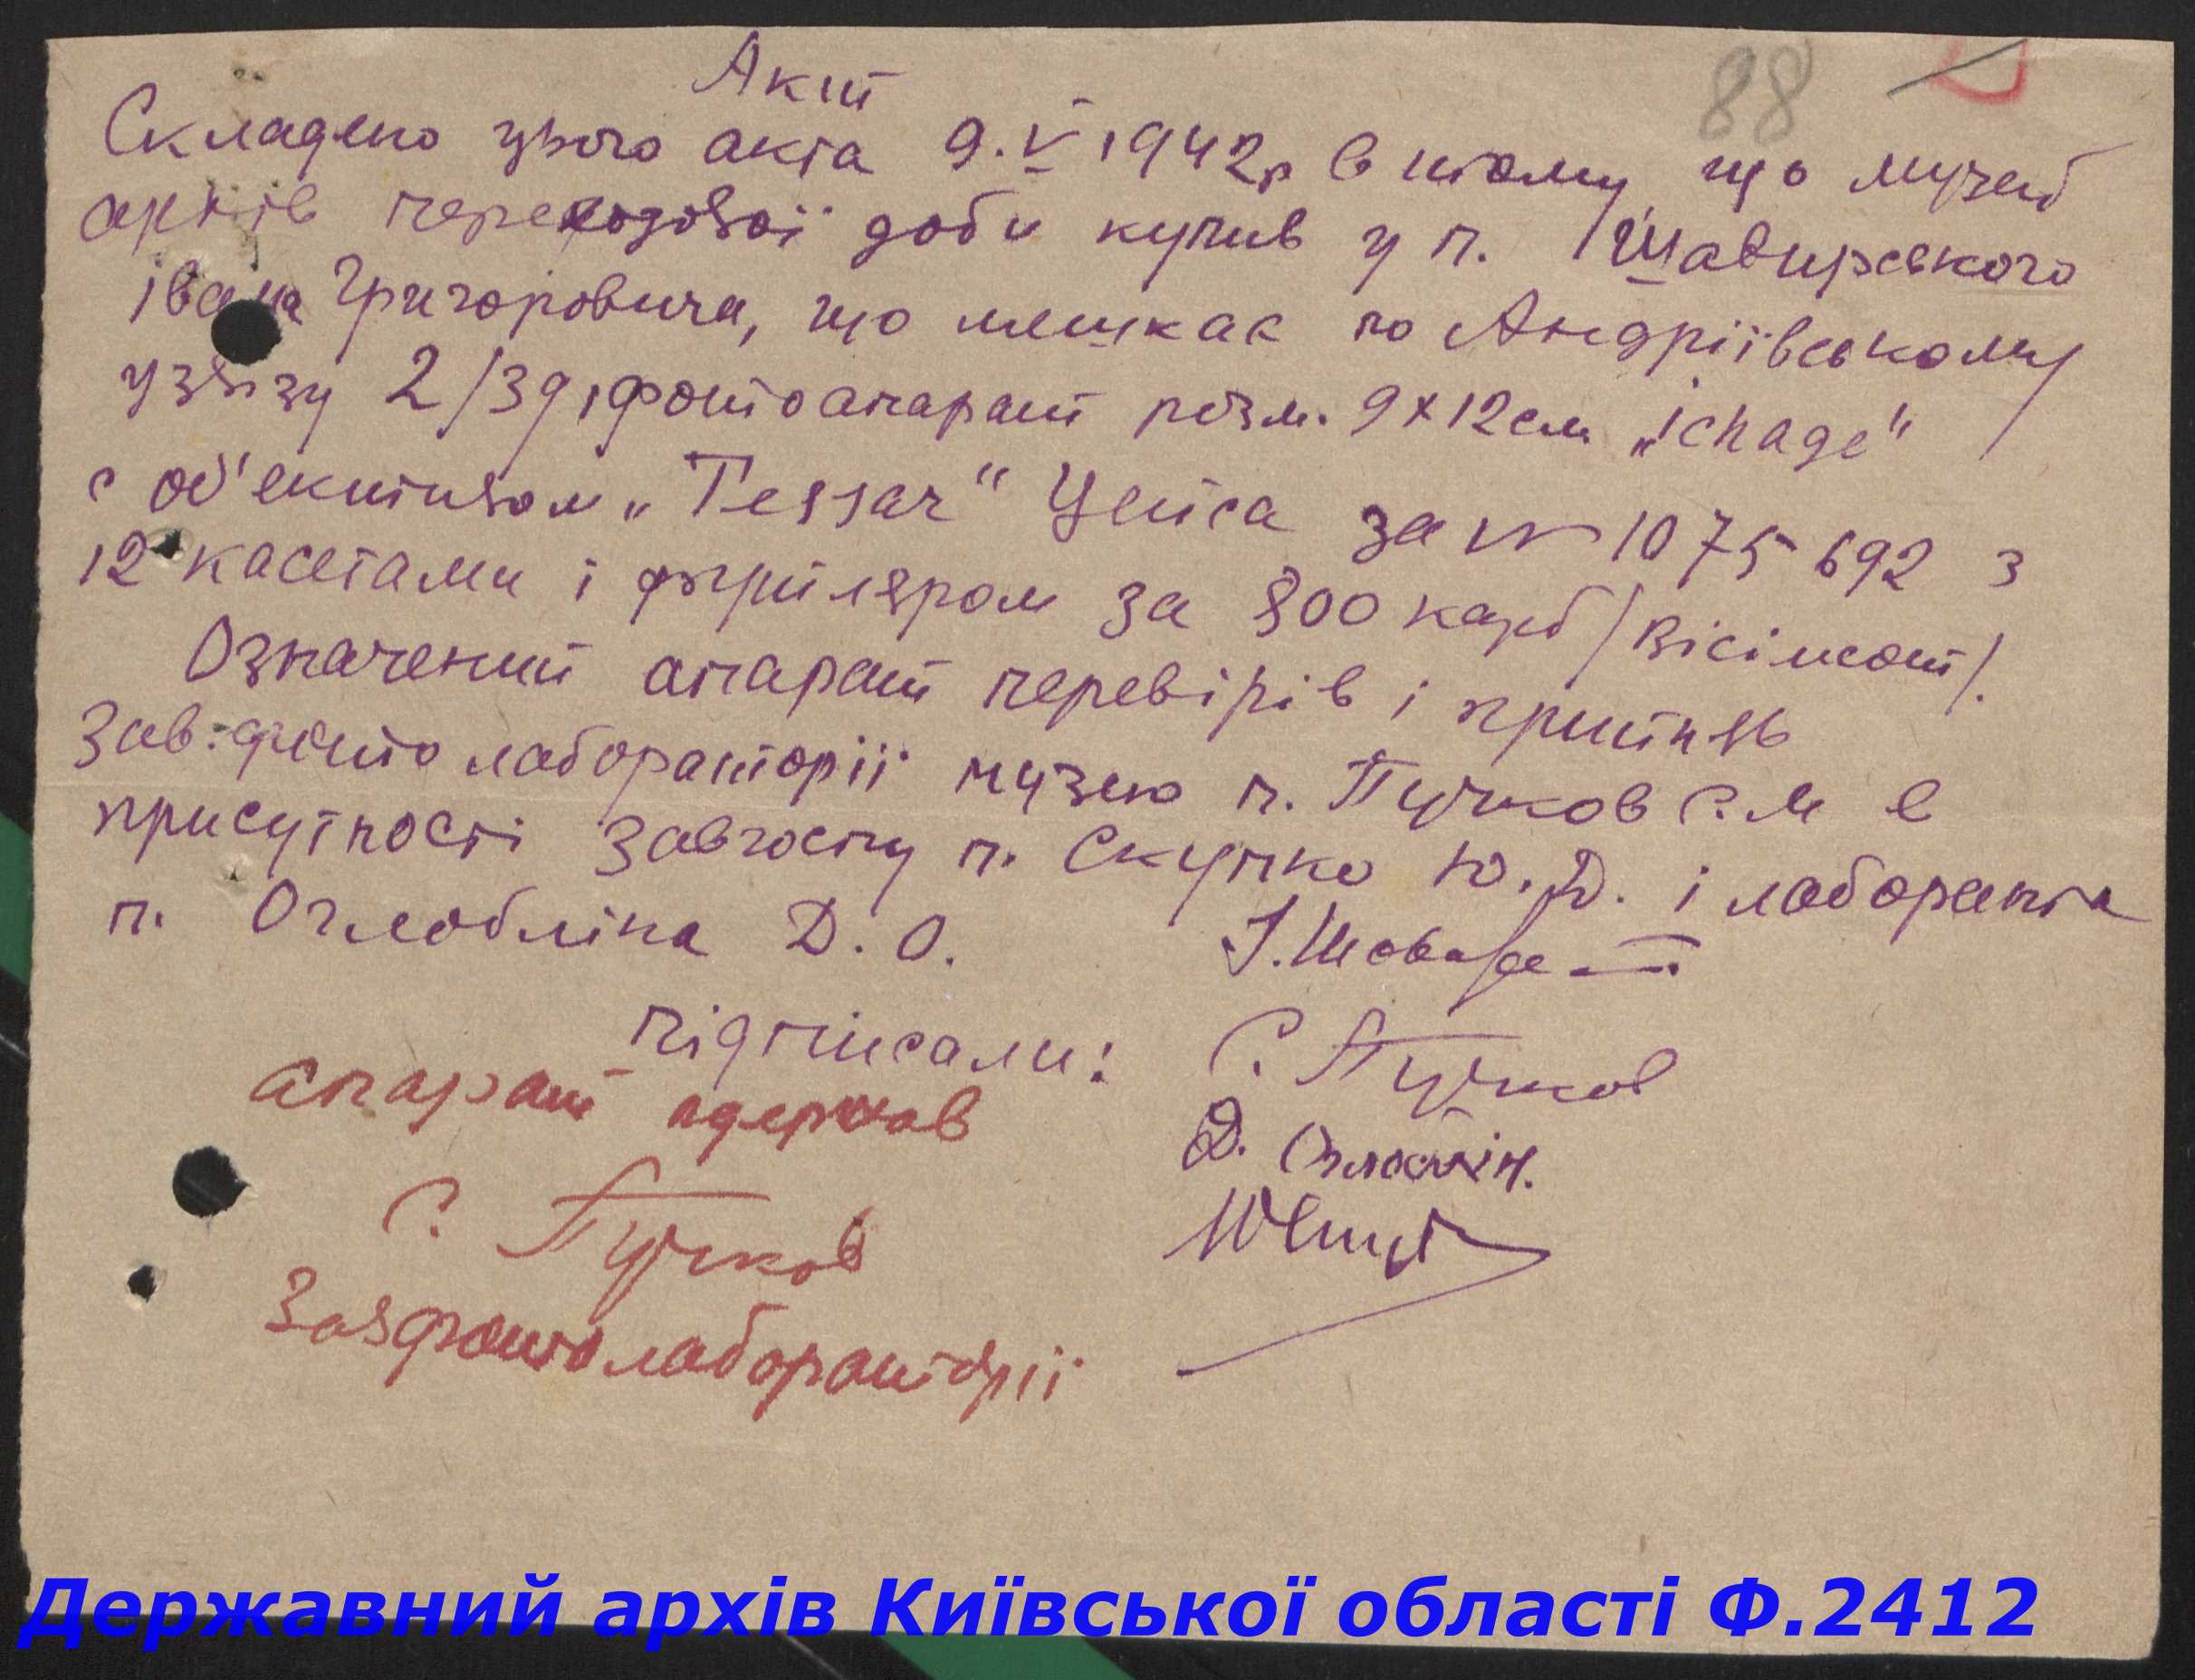 88
Акт
Складено цього акта 9.V 1942р в тому, що музей
архів переходової доби купив у п. Шавирського
Івана Григоровича, що мешкає по Андріївському
узвізу 2/39, фотоапарат розм. 9х12см „ichage"
с об'єктивом „Tessar" Цейса за № 1075692 з
12 касетами і футляром за 800 карб /вісімсот/.
Означений апарат перевірів і прийняв
Зав. фото лабораторії музею п. Пучков С.М в
присутності Завгоспу п. Скупко Ю.Д. і лаборанта
п. Оглобліна Д.О.
підписали:
С. Пучков
апарат одержав
С. Пучков
Завфотолабораторії
Державний архів Київської області Ф.2412